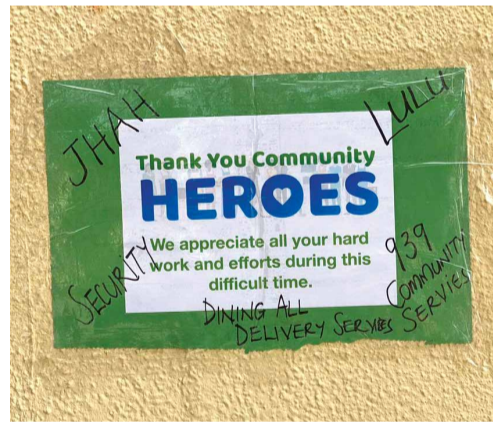 JHAH
LULU
Thank You Community
HEROES
We appreciate all your hard
work and efforts during this
difficult time.
SECURITY
939
COMMUNITY
SERVIES
DINING ALL
DELIVERY SERVIES